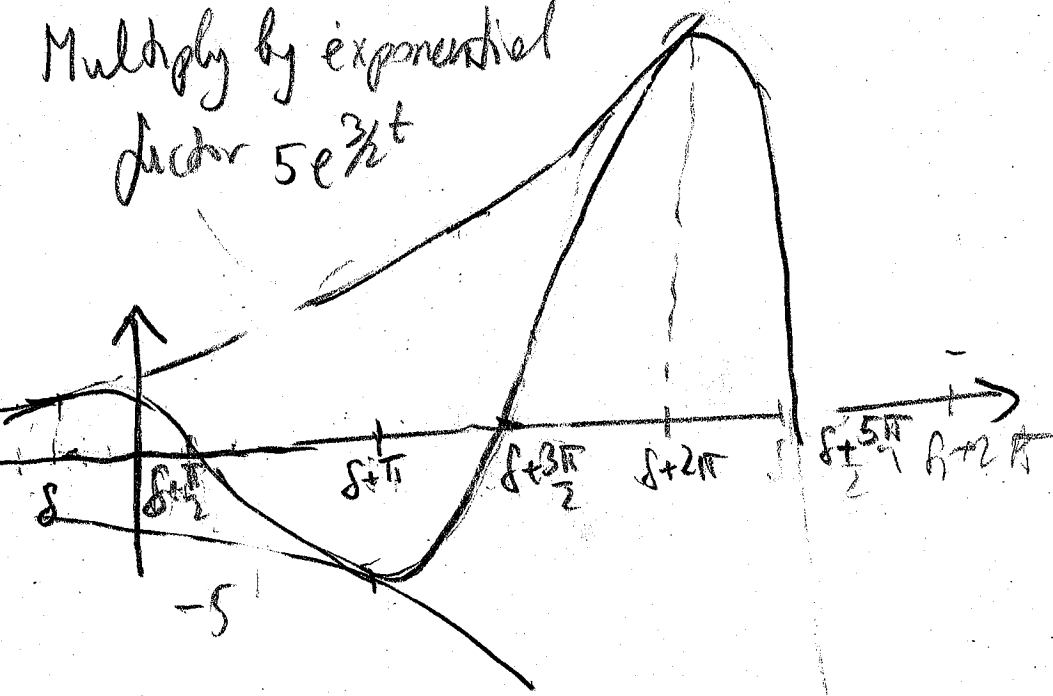 Multiply by exponential
factor 5e^{3/2 t}
δ
δ+π/2
δ+π
δ+3π/2
δ+2π
δ+5π/2
-5